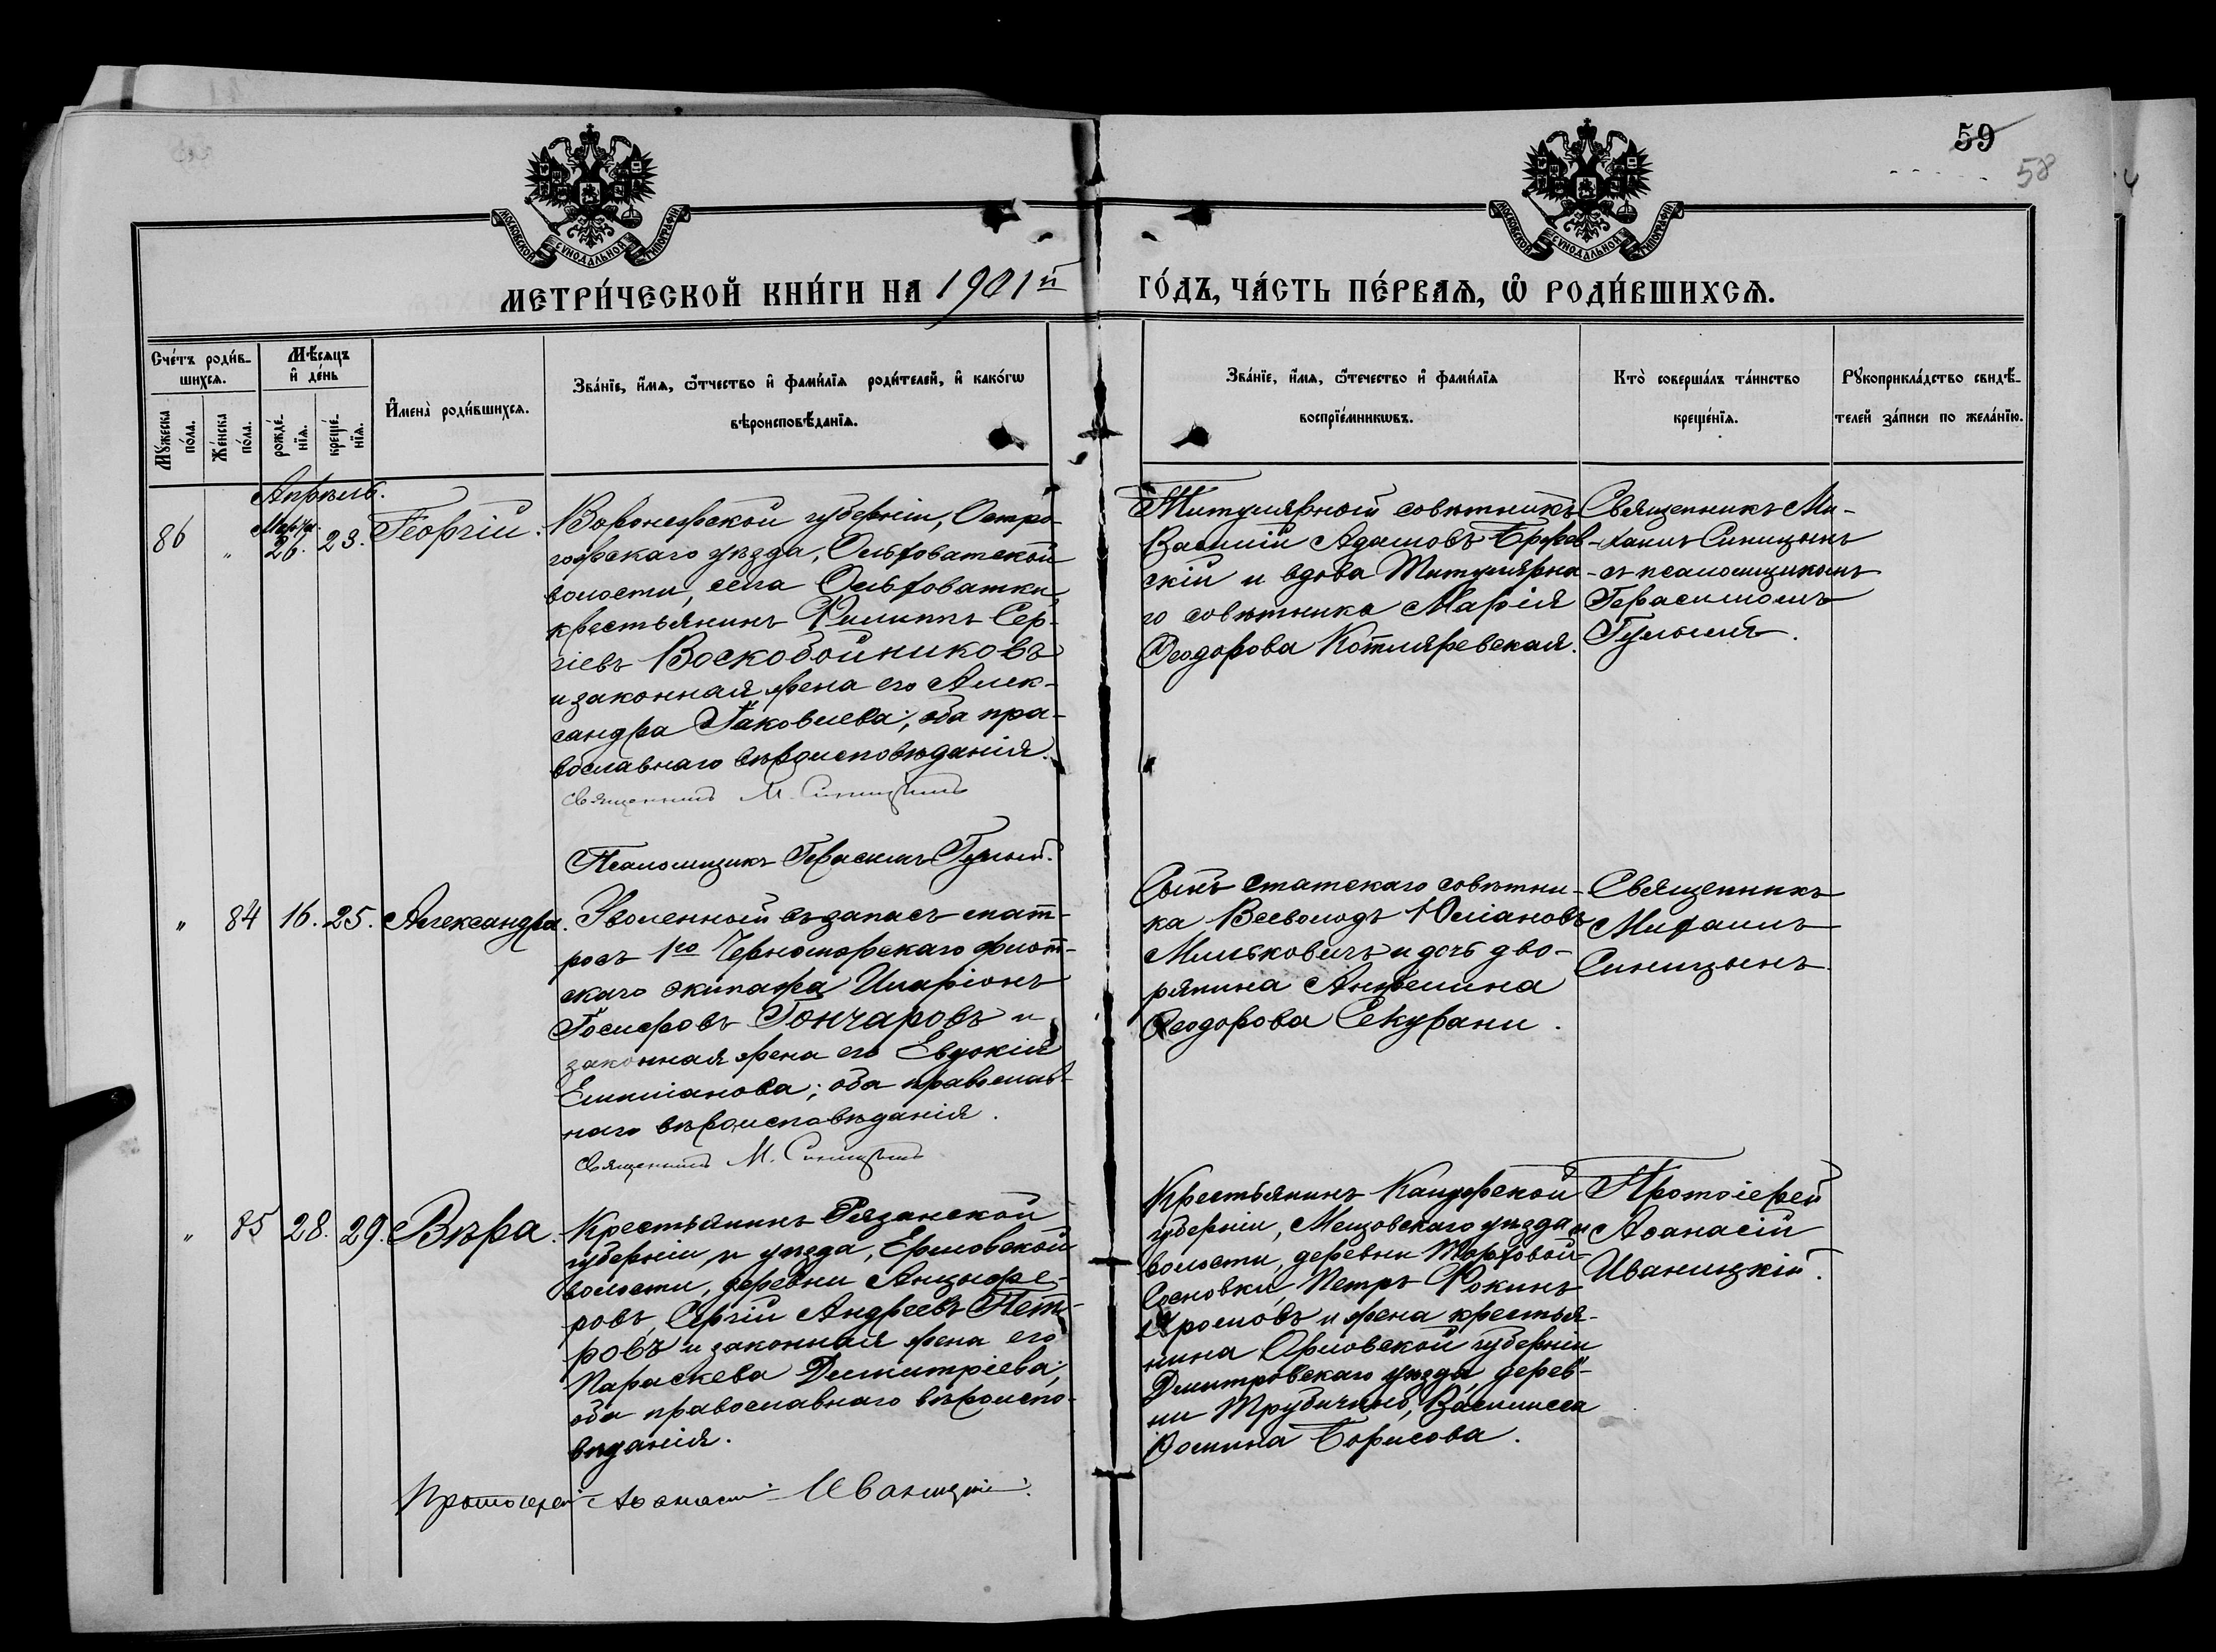 59
58
МОСКОВСКОЙ СѴНОДАЛЬНОЙ ТИПОГРАФІИ
МОСКОВСКОЙ СѴНОДАЛЬНОЙ ТИПОГРАФІИ
МЕТРИ́ЧЕСКОЙ КНИ́ГИ НА 1901й ГО́ДЪ, ЧА́СТЬ ПЕ́РВАѦ, Ѡ РОДИ́ВШИХСѦ.
Сче́тъ роди́в-
шихсѧ.
Мꙋ́жеска
по́ла.
Же́нска
по́ла.
Мѣ́сѧцъ
и҆ де́нь
рожде́-
нїѧ.
креще́-
нїѧ.
И҆мена̀ роди́вшихсѧ.
Зва́нїе, и҆́мѧ, ѻ҆́тчество и҆ фами́лїѧ роди́телей, и҆ како́гѡ
вѣроисповѣ́данїѧ.
Зва́нїе, и҆́мѧ, ѻ҆те́чество и҆ фами́лїѧ
воспрїе́мникѡвъ.
Кто̀ соверша́лъ та́инство
креще́нїѧ.
Рꙋкоприкла́дство свидѣ́-
телей за́писи по жела́нїю.
Апрѣль.
86 " Марта 26. 23. Георгій.
Воронежской губерніи, Остро-
гожскаго уѣзда, Ольховатской
волости, села Ольховатки,
крестьянинъ Филиппъ Сер-
гіевъ Воскобойниковъ
и законная жена его Алек-
сандра Іаковлева; оба пра-
вославнаго вѣроисповѣданія.
Священникъ М. Синицынъ
Псаломщикъ Герасимъ Гулый.
Титулярный совѣтникъ
Василій Адамовъ
скій и вдова Титулярна-
го совѣтника Марія
Ѳеодорова Котляревская.
Священникъ Ми-
хаилъ Синицынъ
съ псаломщикомъ
Герасимомъ
Гулымъ.
" 84 16. 25. Александра.
Уволенный въ запасъ мат-
росъ 1го Черноморскаго флот-
скаго экипажа Иларіонъ
Іосифовъ Гончаровъ и
законная жена его Евдокія
Емиліанова; оба православ-
наго вѣроисповѣданія.
Священникъ М. Синицынъ
Сынъ статскаго совѣтни-
ка Всеволодъ Юліановъ
Мильковичъ и дочь дво-
рянина Ангелина
Ѳеодорова Секурани.
Священникъ
Михаилъ
Синицынъ.
" 85 28. 29. Вѣра.
Крестьянинъ Рязанской
губерніи и уѣзда, Ерловской
волости, деревни Анцыфе-
ровъ, Сергій Андреевъ Пет-
ровъ и законная жена его
Параскева Димитріева;
оба православнаго вѣроиспо-
вѣданія.
Протоіерей Аѳанасій Иваницкій.
Крестьянинъ Калужской
губерніи, Мещовскаго уѣзда и
волости, деревни
Сосновки, Петръ Фокинъ
и жена крестья-
нина Орловской губерніи
Дмитровскаго уѣзда, дерев-
ни Трубичино, Василисса
Ѳомина Борисова.
Протоіерей
Аѳанасій
Иваницкій.